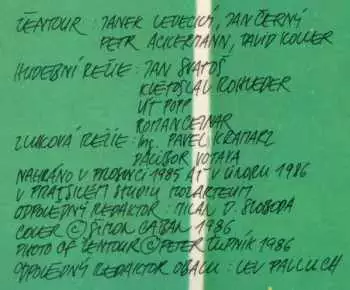 ŽENTOUR : JANEK LEDECKÝ, JAN ČERNÝ
PETR ACKERMANN, DAVID KOLLER
HUDEBNÍ REŽIE : JAN SVATOŠ
KVĚTOSLAV ROHLEDER
VÍT POPP
ROMAN CEJNAR
ZVUKOVÁ REŽIE : Ing. PAVEL KRAMARZ
DALIBOR VOTAVA
NAHRÁNO V PROSINCI 1985 AŽ V ÚNORU 1986
V PRAŽSKÉM STUDIU MOZARTEUM
ODPOVĚDNÝ REDAKTOR : MILAN D. SLOBODA
COVER © ŠIMON CABAN 1986
PHOTO OF ŽENTOUR © PETR ŽUPNÍK 1986
ODPOVĚDNÝ REDAKTOR OBALU : LEV PALLUCH